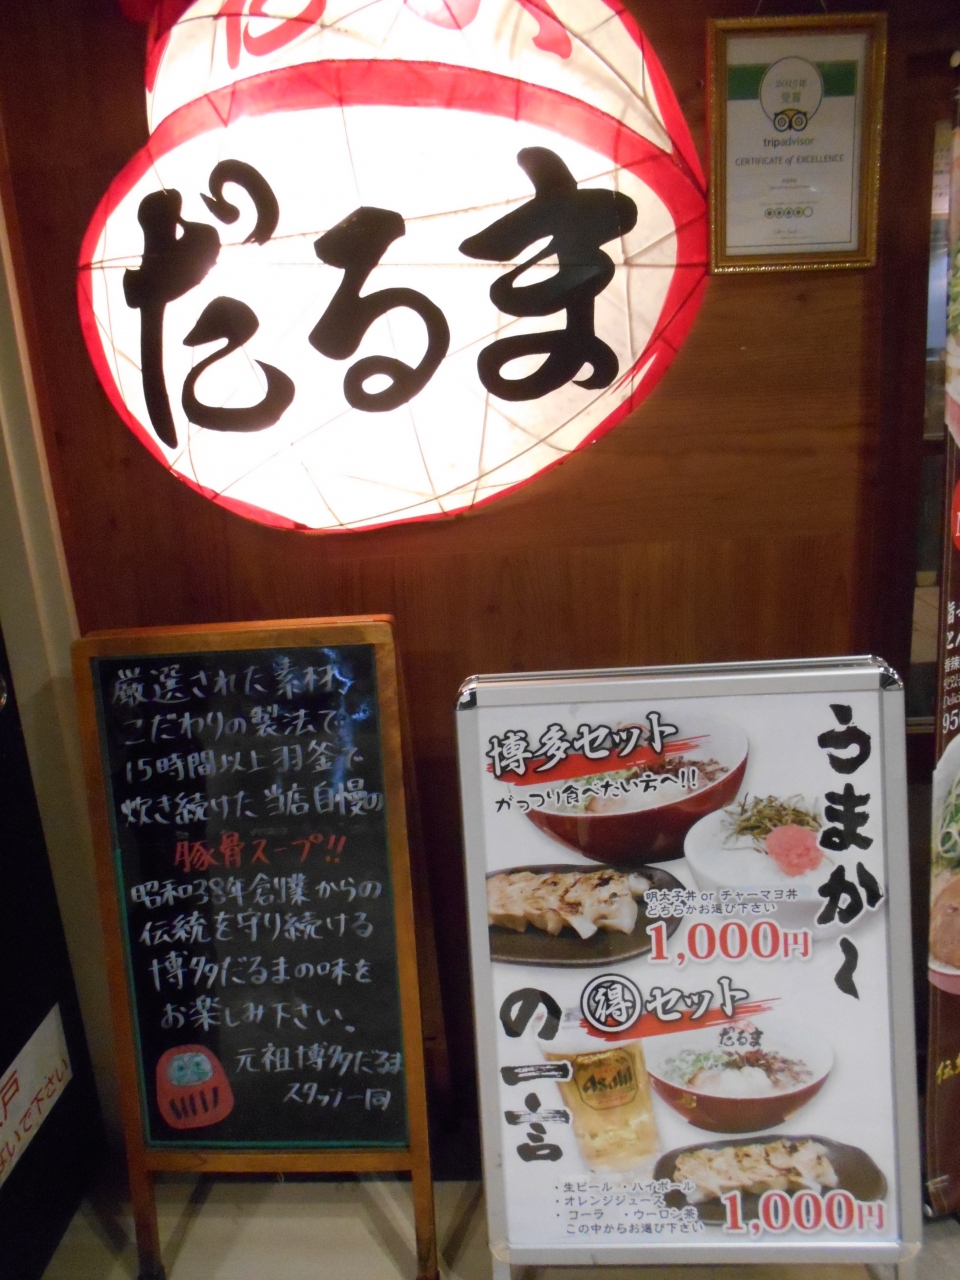 だるま
2015年
受賞
tripadvisor
CERTIFICATE of EXCELLENCE
厳選された素材、
こだわりの製法で
15時間以上羽釜で
炊き続けた当店自慢の
豚骨スープ!!
昭和38年創業からの
伝統を守り続ける
博多だるまの味を
お楽しみ下さい。
元祖博多だるま
スタッフ一同
うまか〜
の一言
博多セット
がっつり食べたい方へ!!
明太子丼 or チャーマヨ丼
どちらかお選び下さい
1,000円
得セット
だるま
Asahi
・生ビール ・ハイボール
・オレンジジュース
・コーラ ・ウーロン茶
この中からお選び下さい
1,000円